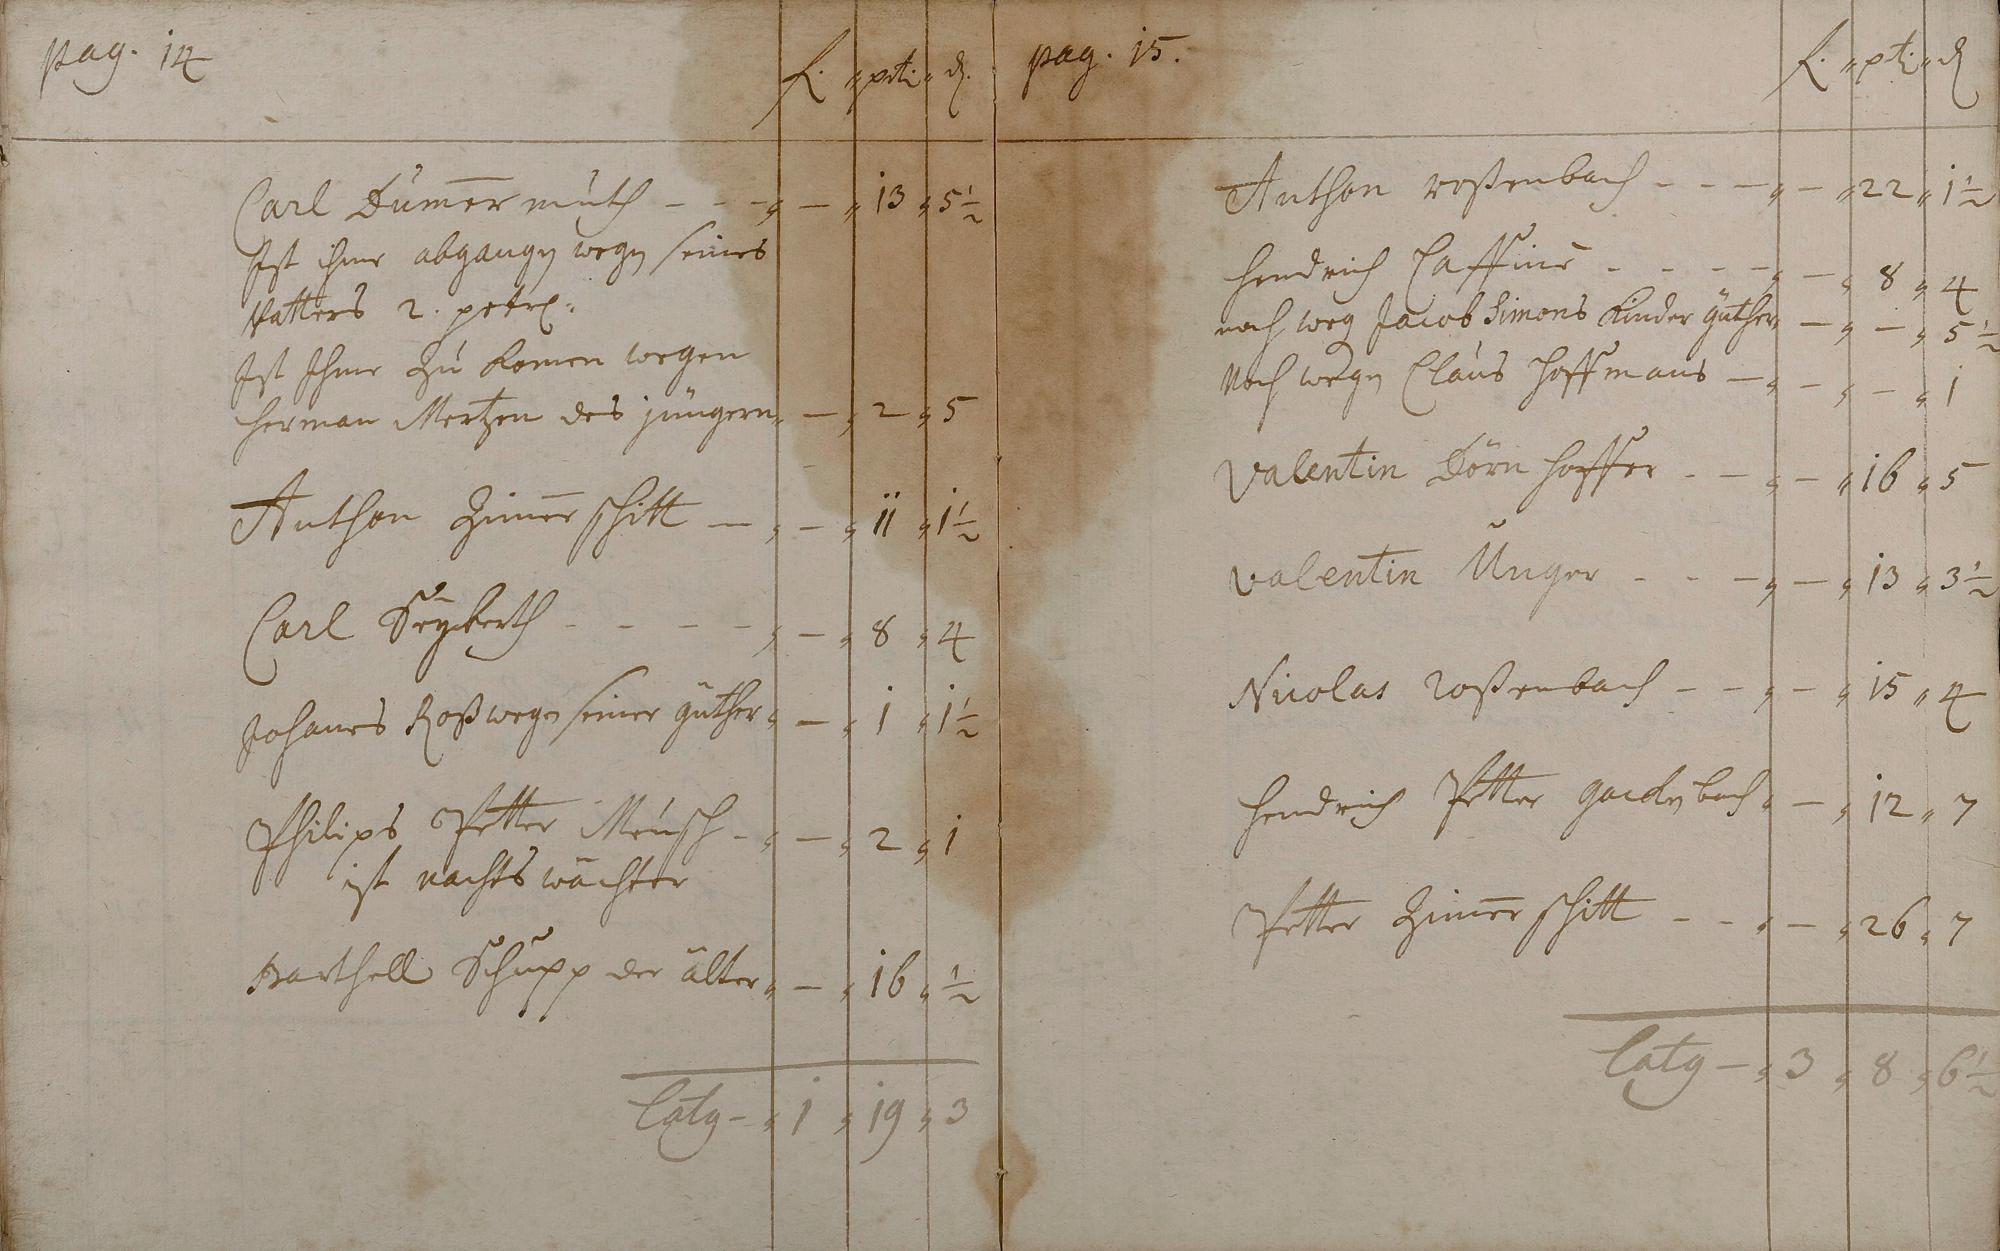 pag. 14
f. " ptt: " d.
Carl Dümermuth - - - " - " 13 " 5 1/2
Ist ihme abgangen wegen seines
Vatters 2. peter.
Ist Ihme Zu komen wegen
herman Mertzen des jüngern " - " 2 " 5
Anthon Zimerschitt - " - " 11 " 1 1/2
Carl Seyberth - - - - " - " 8 " 4
Johanes Roß wegen seiner güther " - " 1 " 1 1/2
Philips Petter Meusch - " - " 2 " 1
ist nachts wächter
Barthell Schupp der älter " - " 16 " 1/2
Latg - " 1 " 19 " 3
pag. 15.
f. " ptt: " d
Anthon roßenbach - - - " - " 22 " 1 1/2
hendrich Caffine - - - - " - " 8 " 4
noch weg Jacob Simons Kinder güther " - " - " 5 1/2
Noch wegen Claus hoffmans - " - " - " 1
Valentin Dörnhoffer - - " - " 16 " 5
Valentin Unger - - - " - " 13 " 3 1/2
Nicolas roßenbach - - " - " 15 " 4
hendrich Petter bach " - " 12 " 7
Petter Zimerschitt - - " - " 26 " 7
Latg - " 3 " 8 " 6 1/2